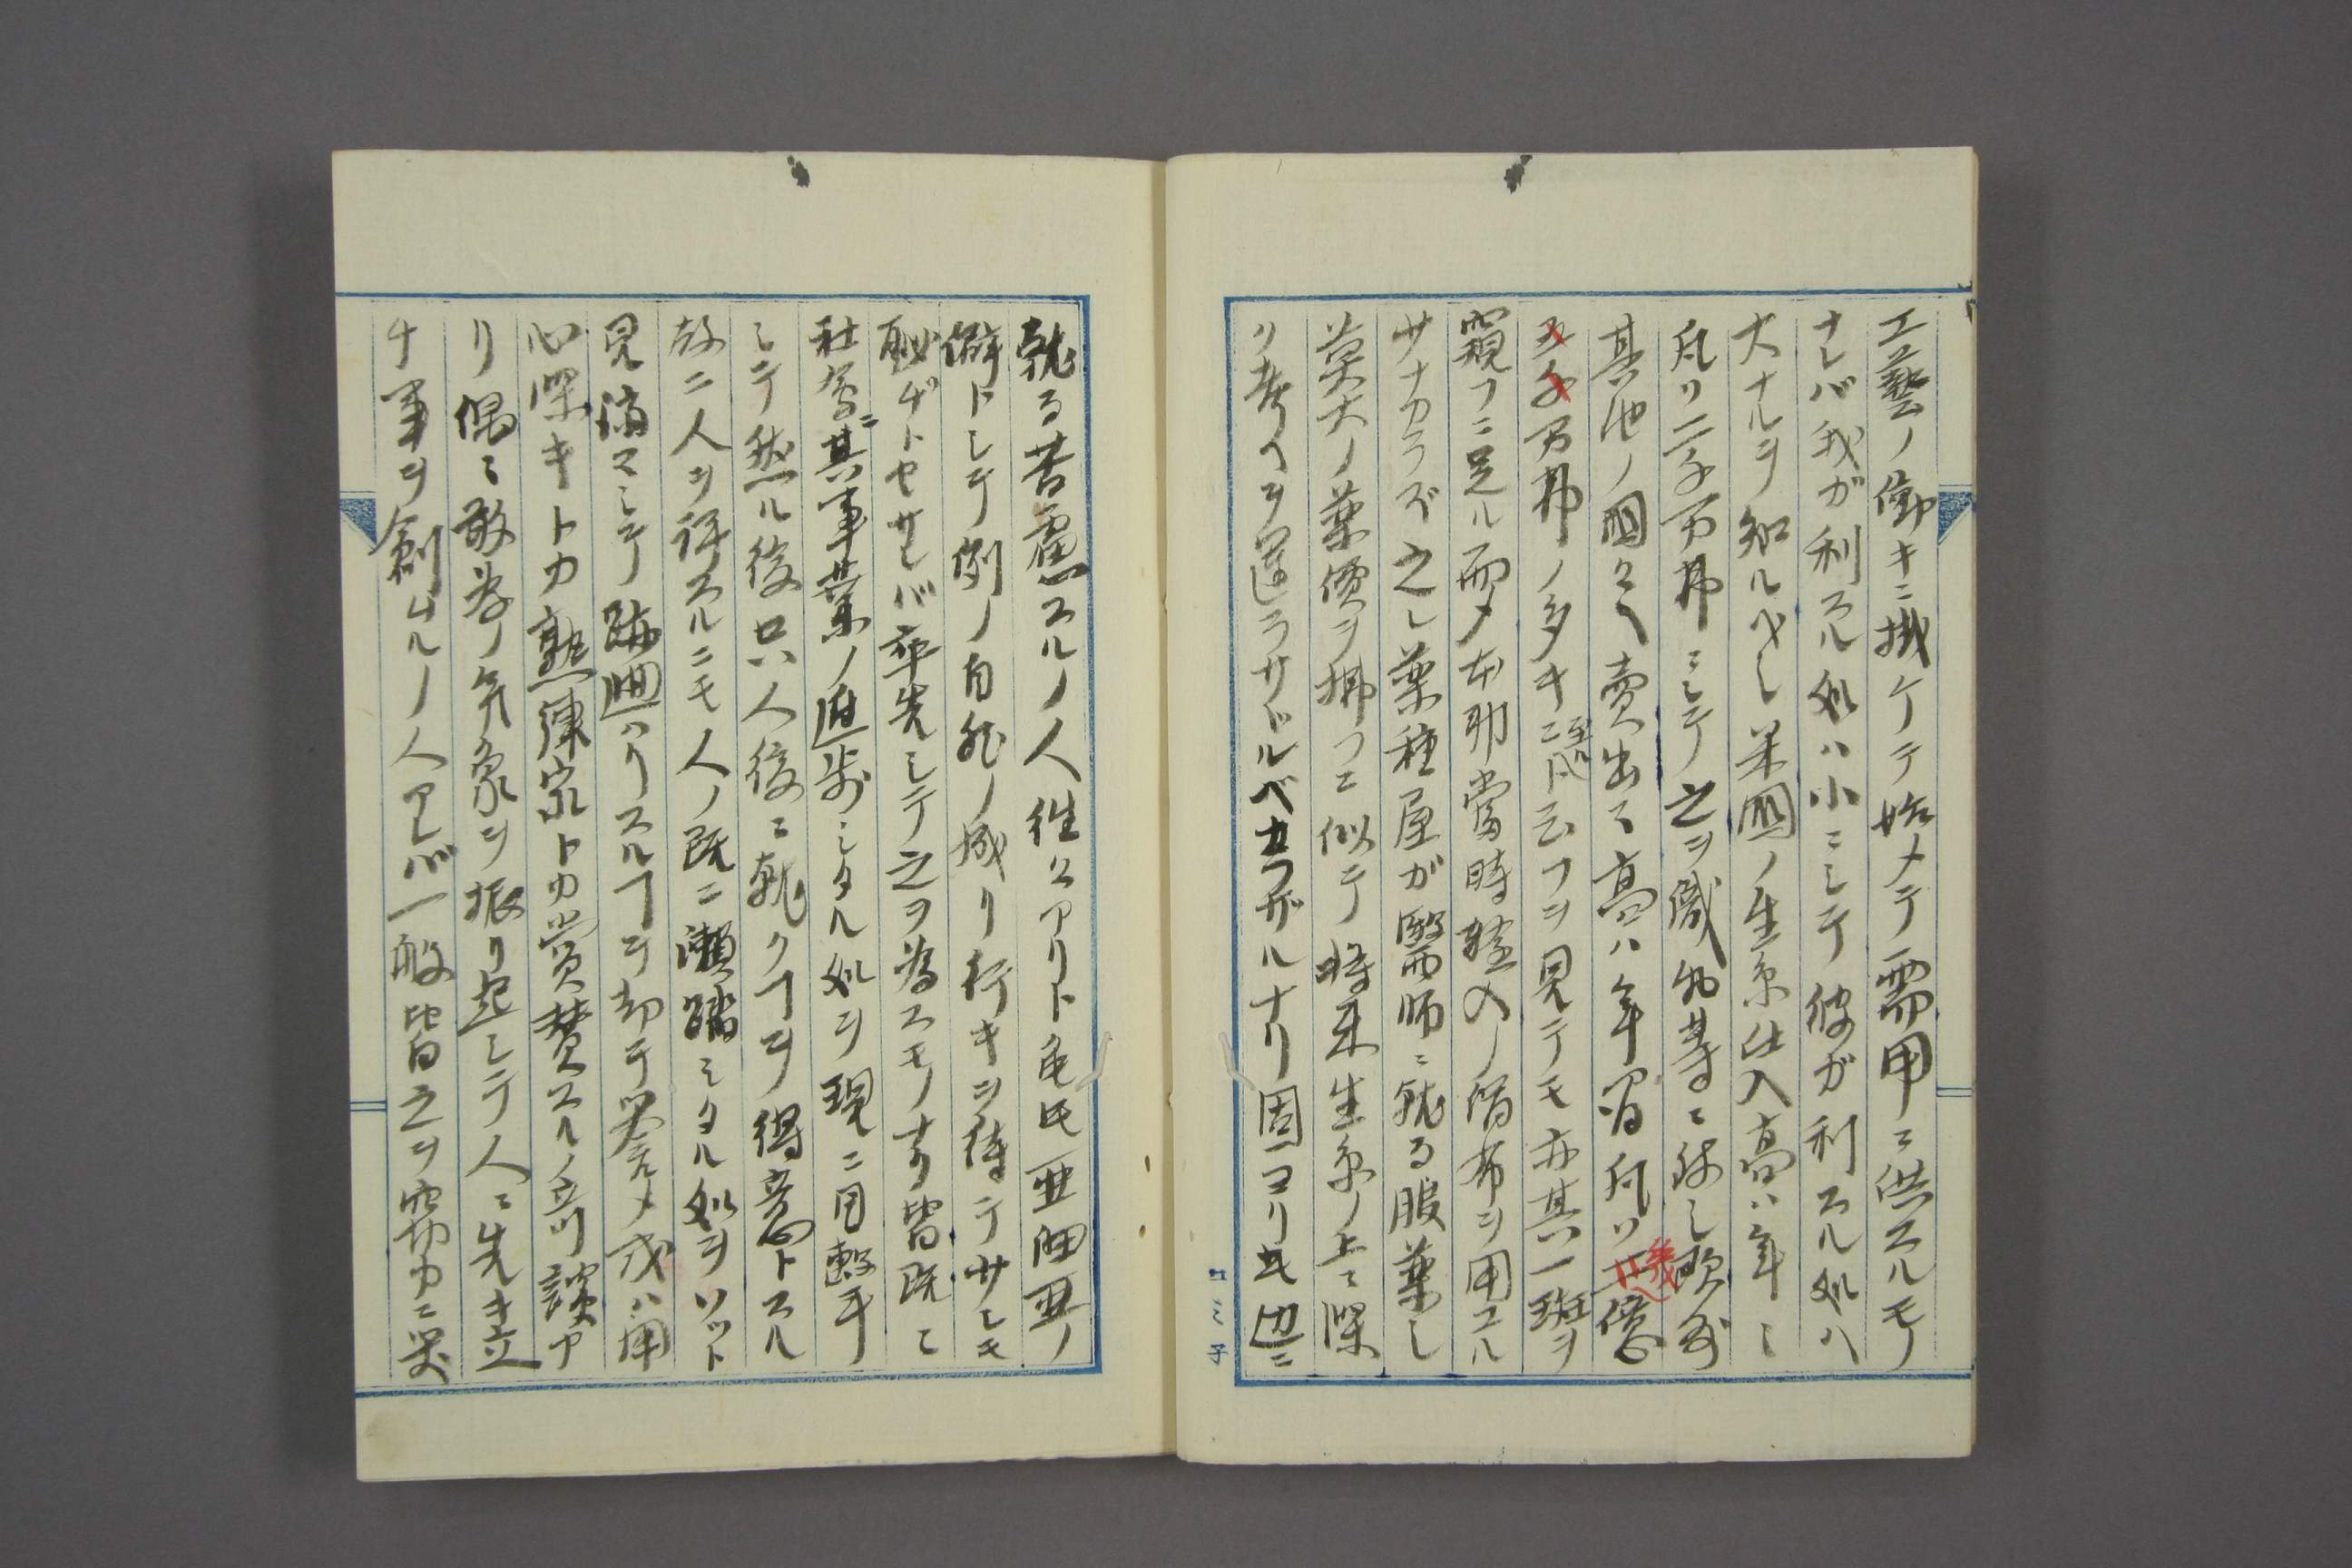 工藝ノ働キニ掛ケテ始メテ需用ニ供スルモノ
ナレバ我ガ利スル処ハ小ニシテ彼ガ利スル処ハ
大ナルヲ知ルベシ米圀ノ生糸仕入高ハ年ニ
凡リ二千万弗ニシテ之ヲ織物等ニ
其他ノ圀々ヘ賣出ス高ハ年間凡ソ幾億
万弗ノ多キニ至ルト云フヲ見テモ亦其一班ヲ
窺フニ足ル而メ本邦當時輸入ノ絹布ヲ用ユル
サナカラズ之レ薬種屋ガ醫師ニ就る服薬し
莫大ノ薬價ヲ拂フニ似テ将来生糸ノ上ニ深
リ考ヘヲ運ラサドルベカラザルナリ固ヨリ此辺ニ
就る苦慮スルノ人往々アリト雖氏亜細亜ノ
僻トシテ例ノ自然ノ成リ行キヲ待テサレモ
恥ヂトセサレバ率先シテ之ヲ為スモノナク皆既ニ
社会ニ其事業ノ進歩シタル処ヲ現ニ目撃
シテ然ル後只人後ニ就クヿヲ得意トスル
故ニ人ヲ評スルニモ人ノ既ニ瀬踏ミタル処ヲソット
見済マシテ跡廻ハリスルヿヲ却テ誉メ或ハ用
心深キトカ熟練家トカ賞賛スルノ立川談ア
リ偶ニ敢為ノ気象ヲ振リ起シテ人ニ先キ立
チ軍ヲ創ムルノ人アレバ一般皆之ヲ窃カニ笑